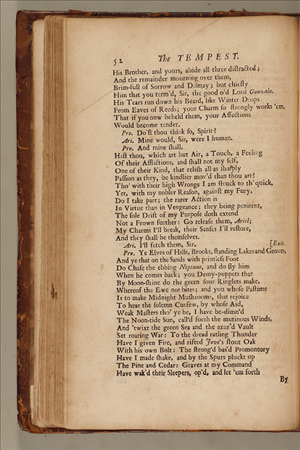 52 The TEMPEST.
His Brother, and yours, abide all three distracted;
And the remainder mourning over them,
Brim-full of Sorrow and Dismay; but chiefly
Him that you term'd, Sir, the good old Lord Gonzalo.
His Tears run down his Beard, like Winter Drops
From Eaves of Reeds; your Charm so strongly works 'em,
That if you now beheld them, your Affections
Would become tender.
Pro. Do'st thou think so, Spirit?
Ari. Mine would, Sir, were I human.
Pro. And mine shall.
Hast thou, which art but Air, a Touch, a Feeling
Of their Afflictions, and shall not my self,
One of their Kind, that relish all as sharply
Passion as they, be kindlier mov'd than thou art?
Tho' with their high Wrongs I am struck to th' quick,
Yet, with my nobler Reason, against my Fury,
Do I take part; the rarer Action is
In Virtue than in Vengeance; they being penitent,
The sole Drift of my Purpose doth extend
Not a Frown further: Go release them, Ariel;
My Charms I'll break, their Senses I'll restore,
And they shall be themselves.
Ari. I'll fetch them, Sir. [Exit.
Pro. Ye Elves of Hills, Brooks, standing Lakes and Groves,
And ye that on the Sands with printless Foot
Do Chase the ebbing Neptune, and do fly him
When he comes back; you Demy-puppets that
By Moon-shine do the green sour Ringlets make,
Whereof the Ewe not bites; and you whose Pastime
Is to make Midnight Mushrooms, that rejoice
To hear the solemn Curfew, by whose Aid,
Weak Masters tho' ye be, I have be-dimm'd
The Noon-tide Sun, call'd forth the mutinous Winds,
And 'twixt the green Sea and the azur'd Vault
Set roaring War: To the dread ratling Thunder
Have I given Fire, and rifted Jove's stout Oak
With his own Bolt: The strong'd bas'd Promontory
Have I made shake, and by the Spurs pluckt up
The Pine and Cedar: Graves at my Command
Have wak'd their Sleepers, op'd, and let 'em forth
By